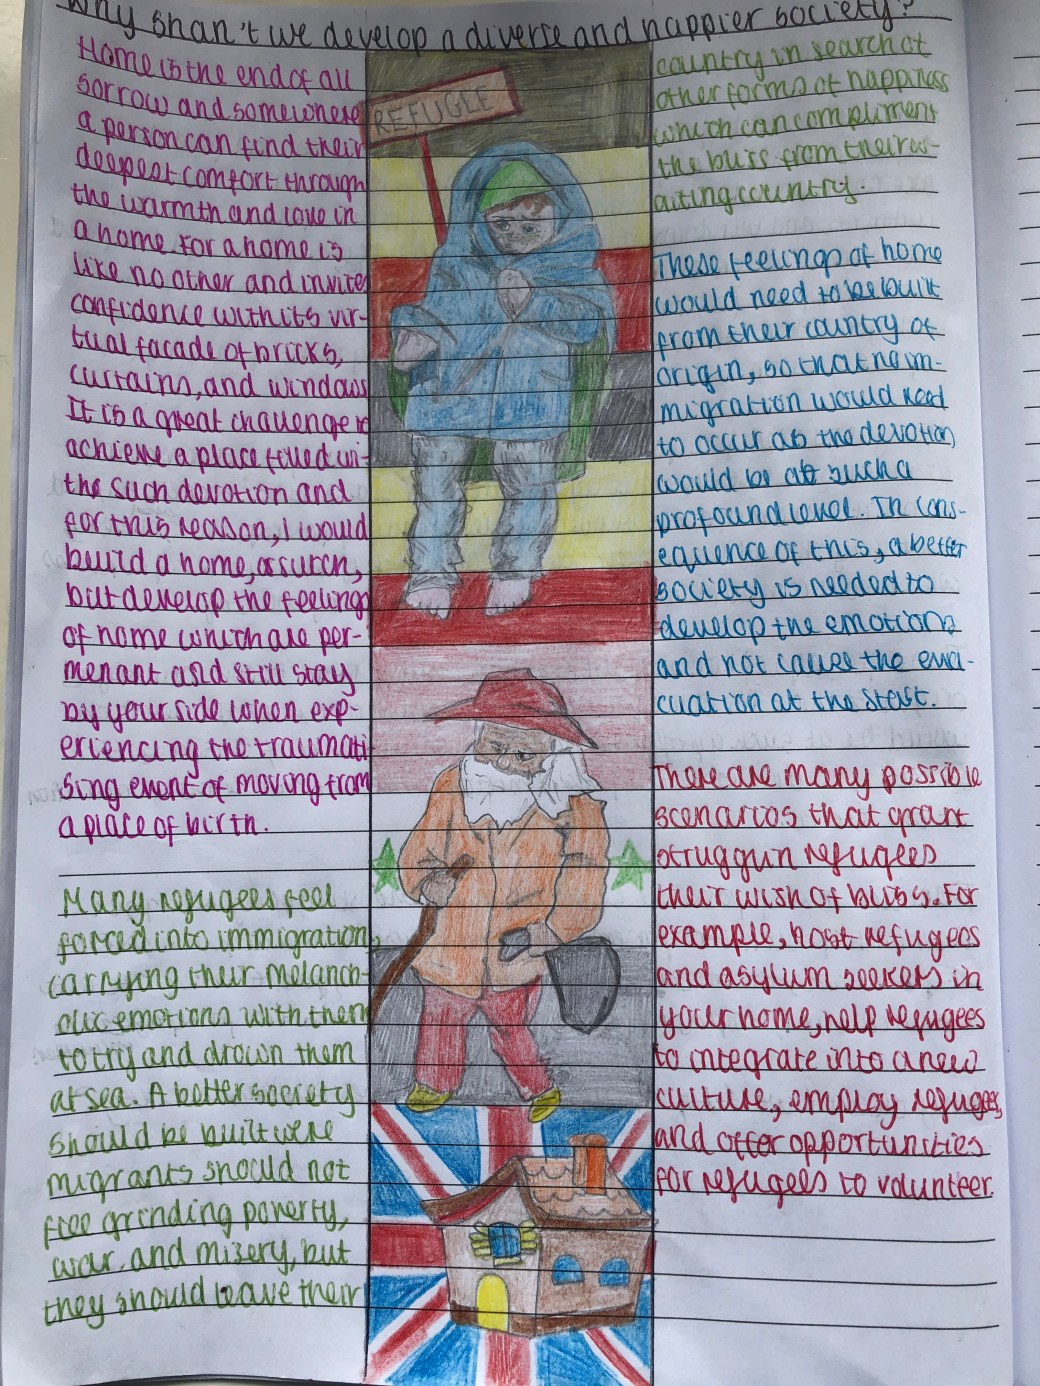 Why shan't we develop a diverse and happier society?
Home is the end of all
sorrow and somewhere
a person can find their
deepest comfort through
the warmth and love in
a home. For a home is
like no other and invites
confidence with its vir-
tual facade of bricks,
curtains, and windows
It is a great challenge to
achieve a place filled wi-
th such devotion and
for this reason, I would
build a home, as such,
but develop the feelings
of home which are per-
menant and still stay
by your side when exp-
eriencing the traumati
sing event of moving from
a place of birth.
Many refugees feel
forced into immigration,
carrying their melanch-
olic emotions with them
to try and drown them
at sea. A better society
should be built were
migrants should not
flee grinding poverty,
war, and misery, but
they should leave their
REFUGEE
country in search of
other forms of happiness
which can compliment
the bliss from their
country.
These feelings of home
would need to be built
from their country of
origin, so that no im-
migration would need
to occur as the devotion
would be at such a
profound level. In cons-
equence of this, a better
society is needed to
develop the emotions
and not cause the eva-
cuation at the start.
There are many possible
scenarios that grant
refugees
their wish of bliss. For
example, host refugees
and asylum seekers in
your home, help refugees
to integrate into a new
culture, employ refugees,
and offer opportunities
for refugees to volunteer.